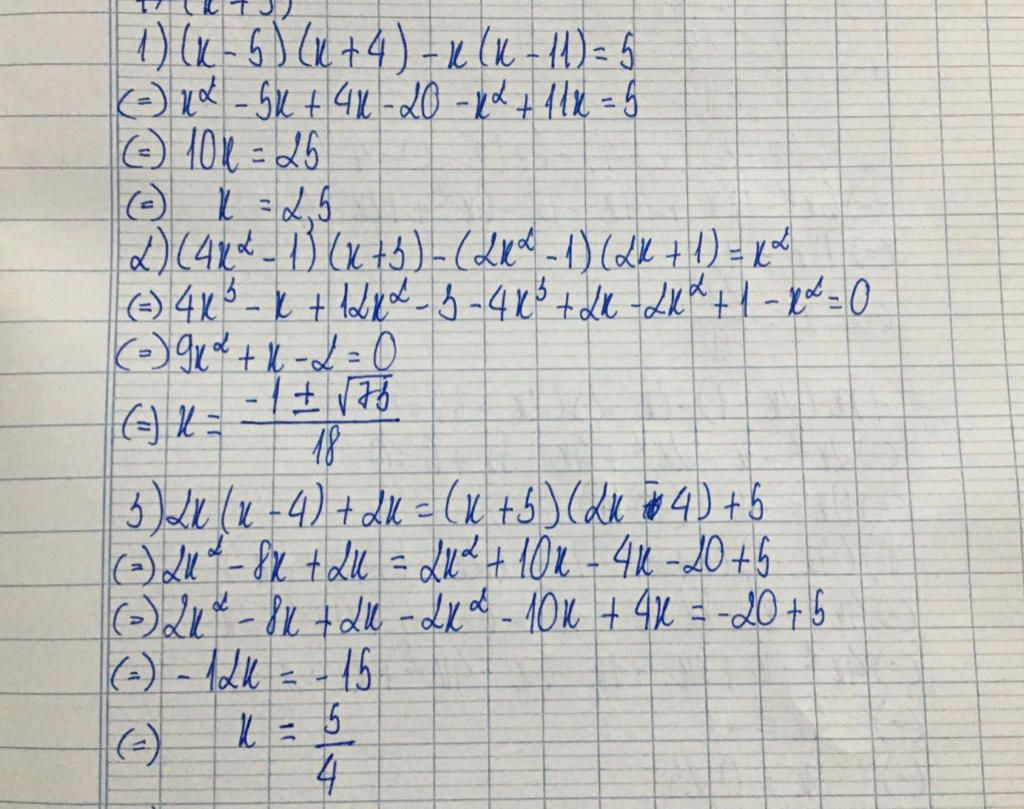 1) (x - 5)(x + 4) - x(x - 11) = 5
(=) x² - 5x + 4x - 20 - x² + 11x = 5
(=) 10x = 25
(=) x = 2,5
2) (4x² - 1)(x + 3) - (2x² - 1)(2x + 1) = x²
(=) 4x³ - x + 12x² - 3 - 4x³ + 2x - 2x² + 1 - x² = 0
(=) 9x² + x - 2 = 0
(=) x = \frac{-1 ± √73}{18}
3) 2x(x - 4) + 2x = (x + 5)(2x - 4) + 5
(=) 2x² - 8x + 2x = 2x² + 10x - 4x - 20 + 5
(=) 2x² - 8x + 2x - 2x² - 10x + 4x = -20 + 5
(=) - 12x = - 15
(=) x = \frac{5}{4}